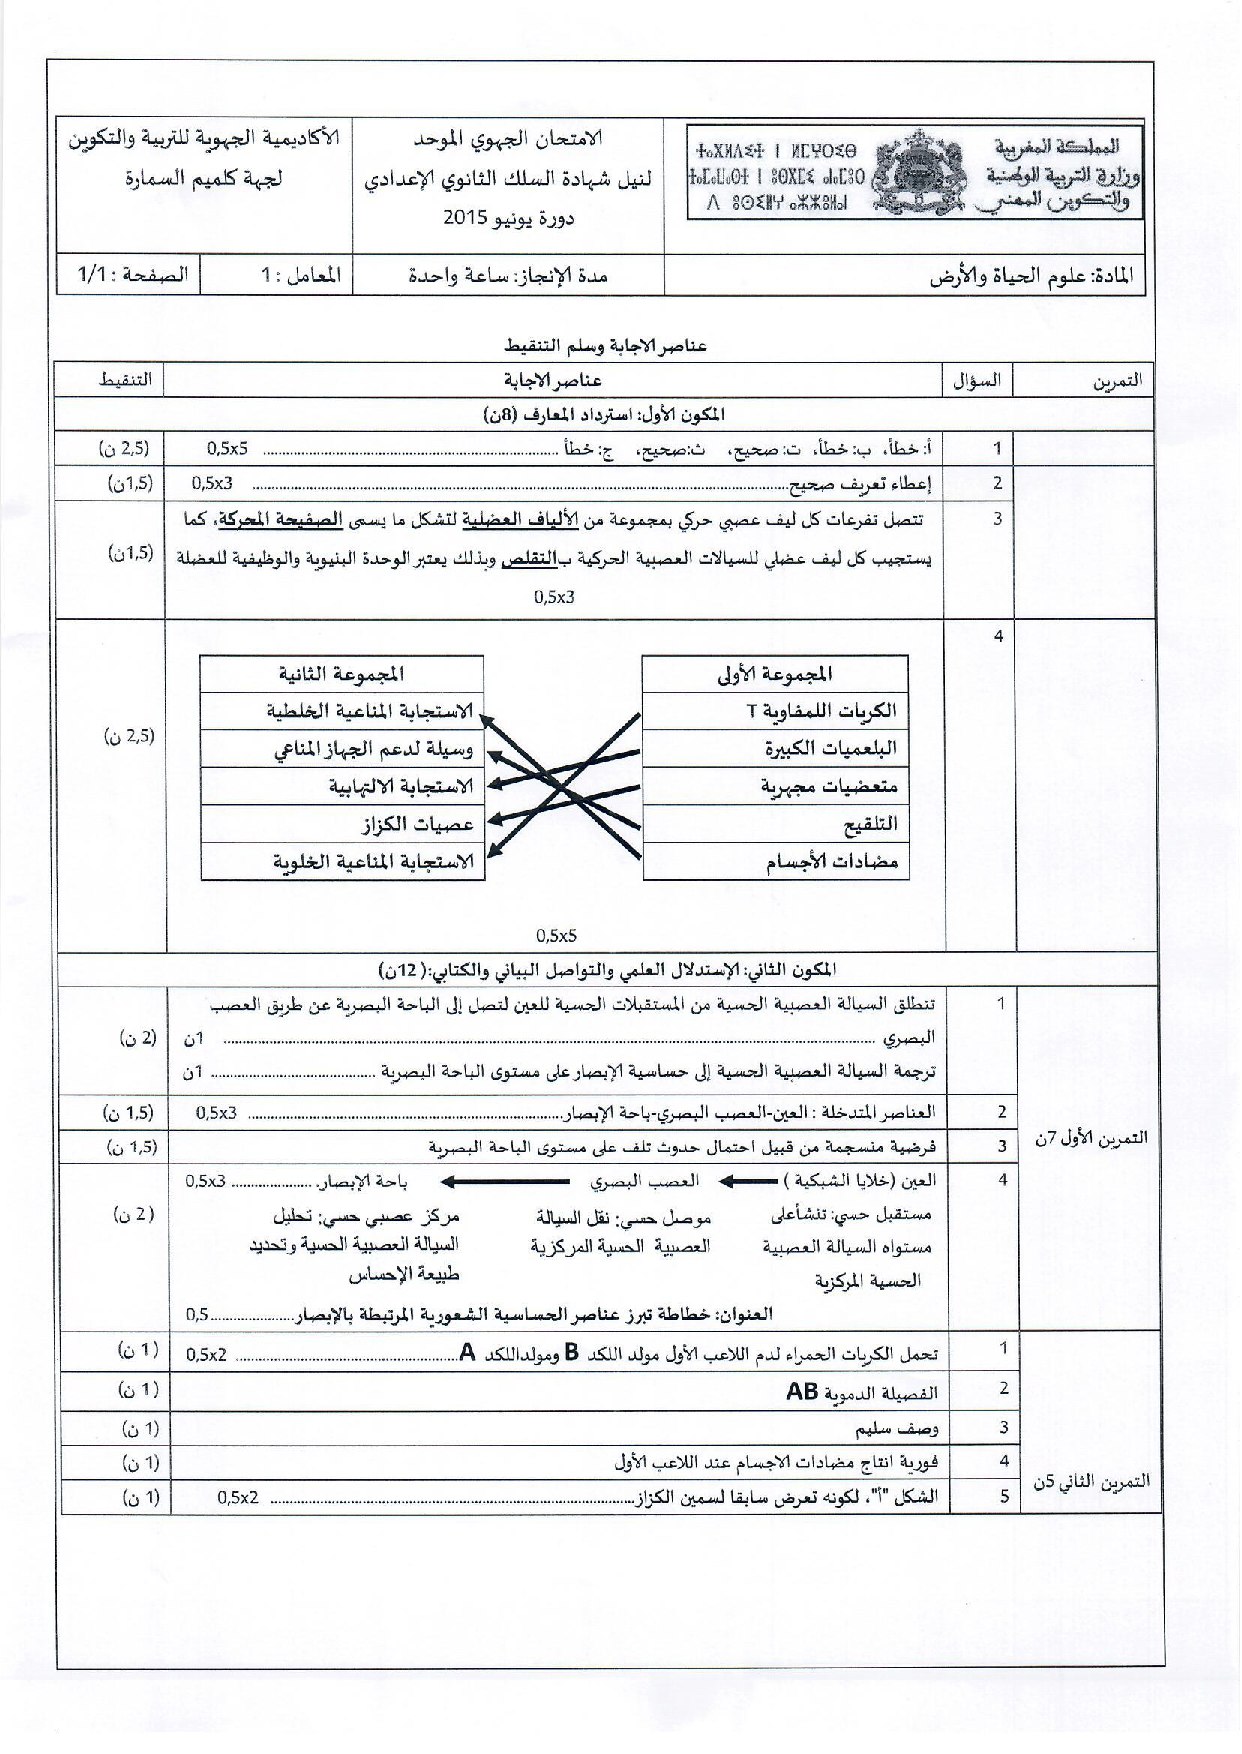 المملكة المغربية
وزارة التربية الوطنية
والتكوين المهني
ⵜⴰⴳⵍⴷⵉⵜ ⵏ ⵍⵎⵖⵔⵉⴱ
الامتحان الجهوي الموحد
لنيل شهادة السلك الثانوي الإعدادي
دورة يونيو 2015
الأكاديمية الجهوية للتربية والتكوين
لجهة كلميم السمارة
المادة: علوم الحياة والأرض
مدة الإنجاز: ساعة واحدة
المعامل : 1
الصفحة : 1/1
عناصر الاجابة وسلم التنقيط
التمرين السؤال عناصر الاجابة التنقيط
المكون الأول: استرداد المعارف (8ن)
1 أ: خطأ، ب: خطأ، ت: صحيح، ث:صحيح، ج: خطأ .......... 0,5x5 (2,5 ن)
2 إعطاء تعريف صحيح.......... 0,5x3 (1,5ن)
3 تتصل تفرعات كل ليف عصبي حركي بمجموعة من الألياف العضلية لتشكل ما يسمى الصفيحة المحركة، كما
يستجيب كل ليف عضلي للسيالات العصبية الحركية بالتقلص وبذلك يعتبر الوحدة البنيوية والوظيفية للعضلة (1,5ن)
0,5x3
4
المجموعة الأولى المجموعة الثانية
الكريات اللمفاوية T الاستجابة المناعية الخلطية
البلعميات الكبيرة وسيلة لدعم الجهاز المناعي (2,5 ن)
متعضيات مجهرية الاستجابة الالتهابية
التلقيح عصيات الكزاز
مضادات الأجسام الاستجابة المناعية الخلوية
0,5x5
المكون الثاني: الإستدلال العلمي والتواصل البياني والكتابي:( 12ن)
التمرين الأول 7ن
1 تنطلق السيالة العصبية الحسية من المستقبلات الحسية للعين لتصل إلى الباحة البصرية عن طريق العصب
البصري .......... 1ن (2 ن)
ترجمة السيالة العصبية الحسية إلى حساسية الإبصار على مستوى الباحة البصرية .......... 1ن
2 العناصر المتدخلة : العين-العصب البصري-باحة الإبصار.......... 0,5x3 (1,5 ن)
3 فرضية منسجمة من قبيل احتمال حدوث تلف على مستوى الباحة البصرية (1,5 ن)
4 العين (خلايا الشبكية ) العصب البصري باحة الإبصار. .......... 0,5x3
مستقبل حسي: تنشأعلى موصل حسي: نقل السيالة مركز عصبي حسي: تحليل (2 ن)
مستواه السيالة العصبية العصبية الحسية المركزية السيالة العصبية الحسية وتحديد
الحسية المركزية طبيعة الإحساس
العنوان: خطاطة تبرز عناصر الحساسية الشعورية المرتبطة بالإبصار.......... 0,5
التمرين الثاني 5ن
1 تحمل الكريات الحمراء لدم اللاعب الأول مولد اللكد B ومولداللكد A .......... 0,5x2 (1 ن)
2 الفصيلة الدموية AB (1 ن)
3 وصف سليم (1 ن)
4 فورية انتاج مضادات الاجسام عند اللاعب الأول (1 ن)
5 الشكل "أ"، لكونه تعرض سابقا لسمين الكزاز.......... 0,5x2 (1 ن)